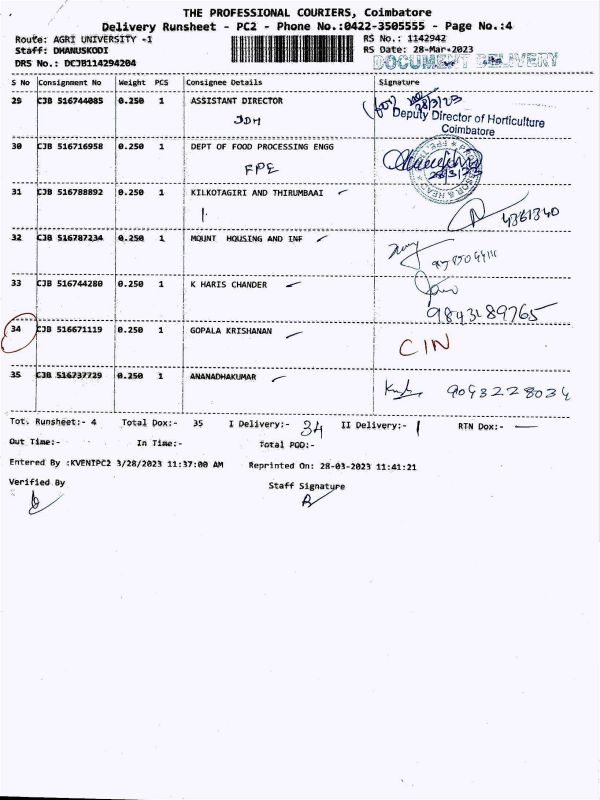 THE PROFESSIONAL COURIERS, Coimbatore
Delivery Runsheet - PC2 - Phone No.:0422-3505555 - Page No.:4
Route: AGRI UNIVERSITY -1 RS No.: 1142942
Staff: DHANUSKODI RS Date: 28-Mar-2023
DRS No.: DCJB114294204 DOCUMENT DELIVERY
S No Consignment No Weight PCS Consignee Details Signature
29 CJB 516744085 0.250 1 ASSISTANT DIRECTOR
JDH 28/3/23
Deputy Director of Horticulture
Coimbatore
30 CJB 516716958 0.250 1 DEPT OF FOOD PROCESSING ENGG
FPE 28/3/23
31 CJB 516788892 0.250 1 KILKOTAGIRI AND THIRUMBAAI
4361340
32 CJB 516787234 0.250 1 MOUNT HOUSING AND INF
33 CJB 516744280 0.250 1 K HARIS CHANDER
9843189765
34 CJB 516671119 0.250 1 GOPALA KRISHANAN
CIN
35 CJB 516737729 0.250 1 ANANADHAKUMAR
9043228034
Tot. Runsheet:- 4 Total Dox:- 35 I Delivery:- 34 II Delivery:- 1 RTN Dox:- —
Out Time:- In Time:- Total POD:-
Entered By :KVENIPC2 3/28/2023 11:37:00 AM Reprinted On: 28-03-2023 11:41:21
Verified By Staff Signature